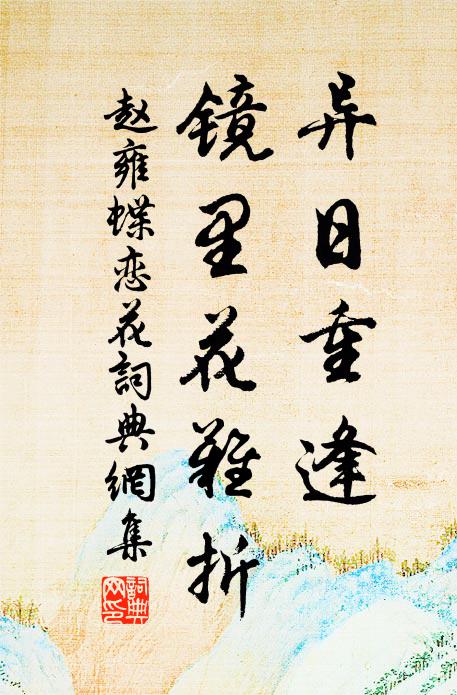 异日重逢
镜里花難折
赵雍蝶恋花詞典網集
詞典網印